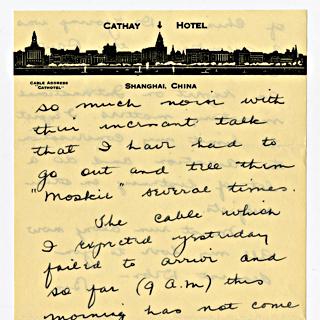 CATHAY HOTEL
CABLE ADDRESS
"CATHOTEL"
SHANGHAI, CHINA
so much noise with
their incessant talk
that I have had to
go out and tell them
"Moskii" several times.
The cable which
I expected yesterday
failed to arrive and
so far (9 A.M.) this
morning has not come